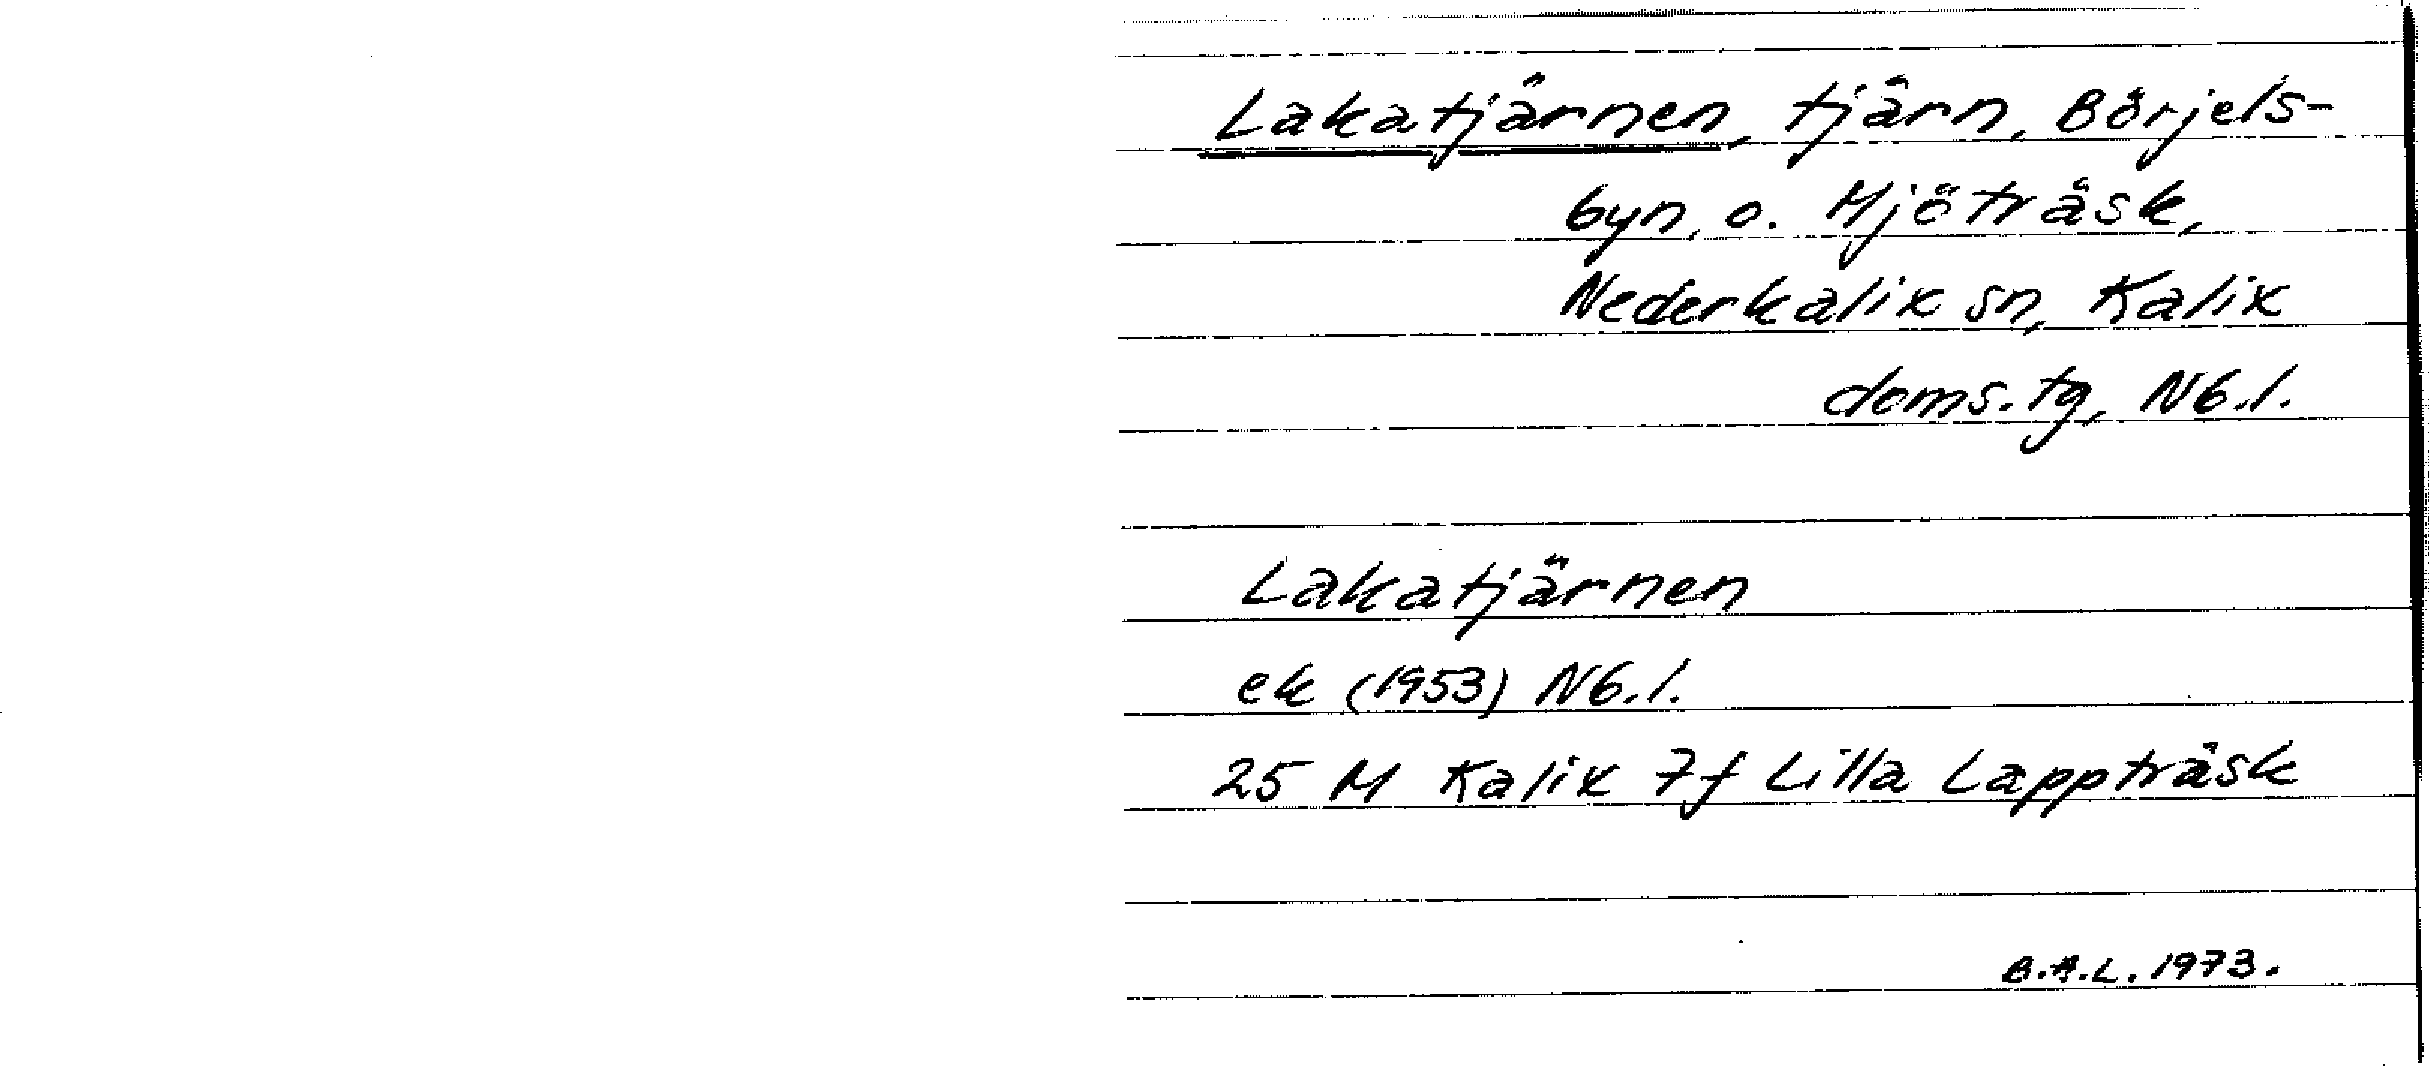 Lakatjärnen, tjärn, Börjels-
byn, o. Mjöträsk,
Nederkalix sn, Kalix
doms.tg, Nb.l.
Lakatjärnen
ek (1953) Nb.l.
25 M Kalix 7f Lilla Lappträsk
B.A.L. 1973.